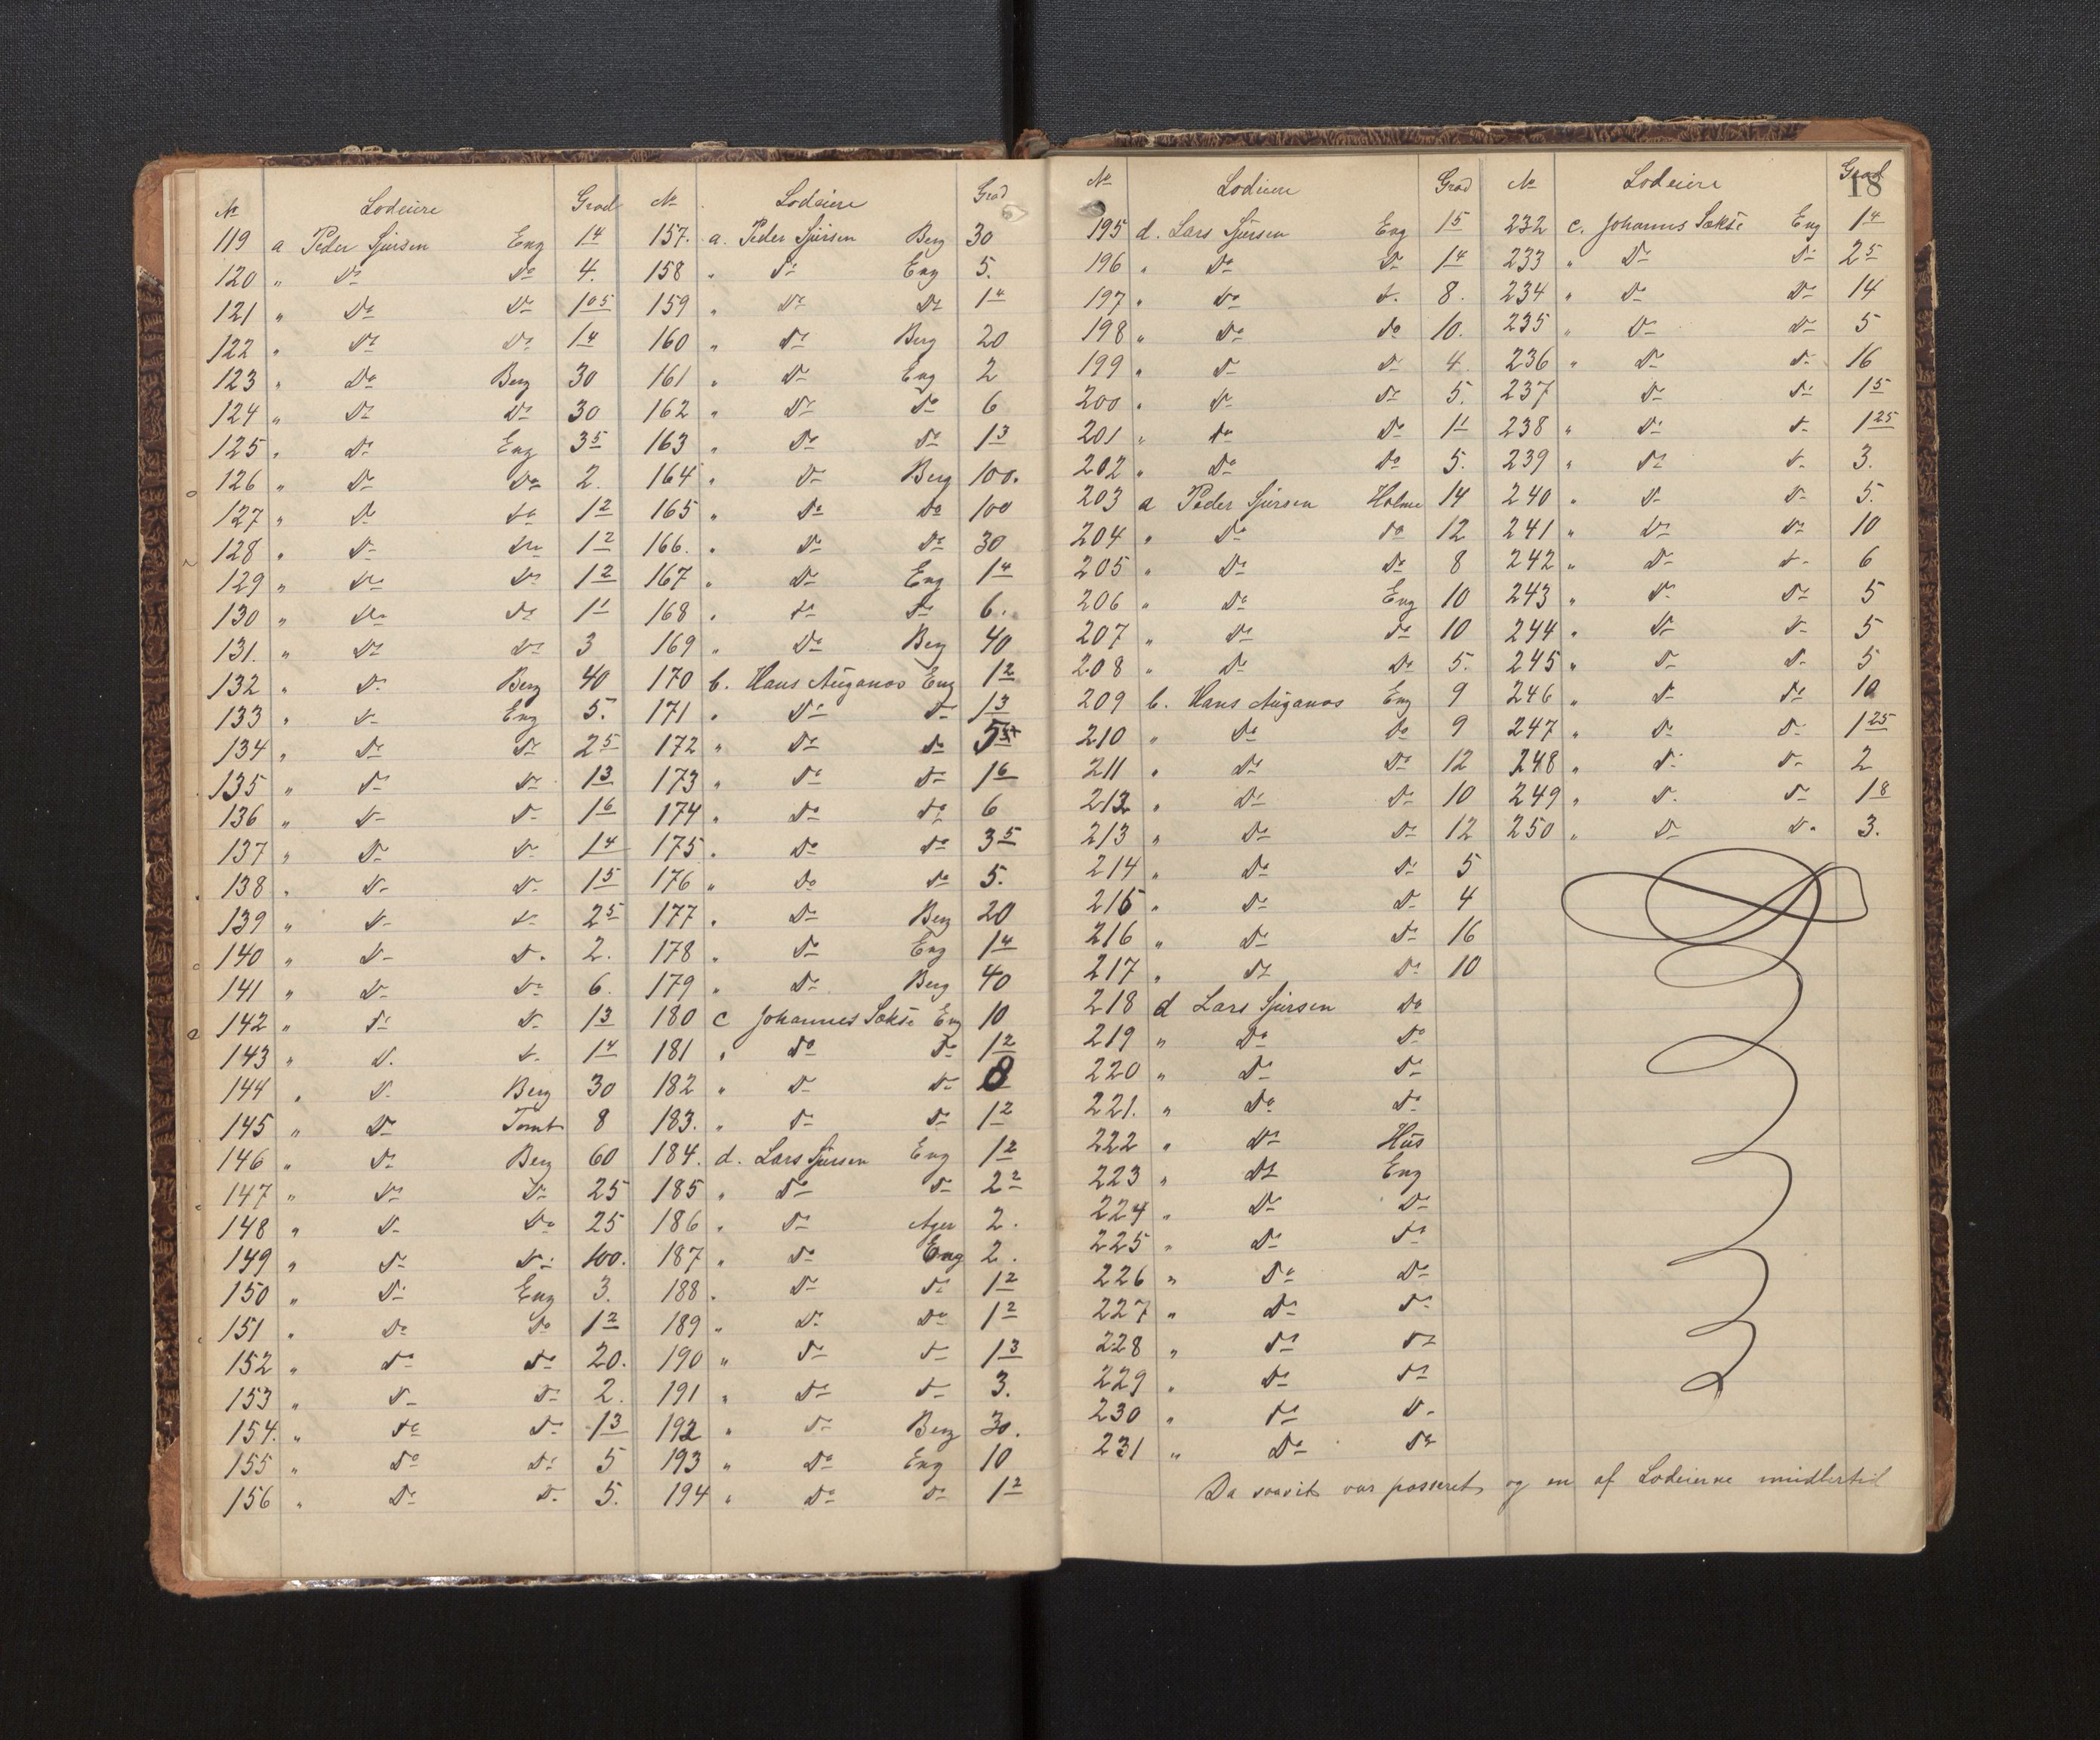 No Lodeiere Grad No Lodeiere Grad
119 a Peder Sjursen Eng 1 4 157. a. Peder Sjursen Berg 30
120 " Do Do 4. 158 " Do Eng 5.
121 " Do Do 1 05 159 " Do Do 1 4
122 " Do Do 1 4 160 " Do Berg 20
123 " Do Berg 30 161 " Do Eng 2
124 " Do Do 30 162 " Do Do 6
125 " Do Eng 3 5 163 " Do Do 1 3
126 " Do Do 2. 164 " Do Berg 100.
127 " Do Do 1 2 165 " Do Do 100
128 " Do Do 1 2 166. " Do Do 30
129 " Do Do 1 2 167 " Do Eng 1 4
130 " Do Do 1 1 168 " Do Do 6.
131. " Do Do 3 169 " Do Berg 40
132 " Do Berg 40 170 b. Hans Auganos Eng 1 2
133 " Do Eng 5. 171 " Do Do 1 3
134 " Do Do 2 5 172 " Do Do 5
135 " Do Do 1 3 173 " Do Do 1 6
136 " Do Do 1 6 174 " Do Do 6
137 " Do Do 1 4 175 " Do Do 3 5
138 " Do Do 1 5 176 " Do Do 5.
139 " Do Do 2 5 177 " Do Berg 20
140 " Do Do 2. 178 " Do Eng 1 4
141 " Do Do 6. 179 " Do Berg 40
142 " Do Do 1 3 180 c Johannes Sekse Eng 10
143 " Do Do 1 4 181 " Do Do 1 2
144 " Do Berg 30 182 " Do Do 8
145 " Do Tomt 8 183. " Do Do 1 2
146 " Do Berg 60 184. d. Lars Sjursen Eng 1 2
147 " Do Do 25 185 " Do Do 2 2
148 " Do Do 25 186 " Do Ager 2.
149 " Do Do 100. 187 " Do Eng 2.
150 " Do Eng 3. 188 " Do Do 1 2
151 " Do Do 1 2 189 " Do Do 1 2
152 " Do Do 20. 190 " Do Do 1 3
153 " Do Do 2. 191 " Do Do 3.
154. " Do Do 1 3 192 " Do Berg 30.
155 " Do Do 5 193 " Do Eng 10
156 " Do Do 5. 194 " Do Do 1 2
18
No Lodeiere Grad No Lodeiere Grad
195 d. Lars Sjursen Eng 1 5 232 c. Johannes Sekse Eng 1 4
196 " Do Do 1 4 233 " Do Do 2 5
197 " Do Do 8. 234 " Do Do 14
198 " Do Do 10. 235 " Do Do 5
199 " Do Do 4. 236 " Do Do 16
200 " Do Do 5. 237 Do Do 1 5
201 " Do Do 1 1 238 " Do Do 1 25
202 " Do Do 5. 239 " Do Do 3.
203 a Peder Sjursen Holme 14 240 " Do Do 5.
204 " Do Do 12 241 " Do Do 10
205 " Do Do 8 242 " Do Do 6
206 " Do Eng 10 243 " Do Do 5
207 " Do Do 10 244 " Do Do 5
208 " Do Do 5. 245 " Do Do 5
209 b. Hans Auganos Eng 9 246 " Do Do 10
210 " Do Do 9 247 " Do Do 1 25
211 " Do Do 12 248 " Do Do 2
212 " Do Do 10 249 " Do Do 1 8
213 " Do Do 12 250 " Do Do 3.
214 " Do Do 5
215 " Do Do 4
216 " Do Do 16
217 " Do Do 10
218 d Lars Sjursen Do
219 " Do Do
220 " Do Do
221. " Do Do
222 " Do Hus
223 " Do Eng
224 " Do Do
225 " Do Do
226 " Do Do
227 " Do Do
228 " Do Do
229 " Do Do
230 " Do Do
231 " Do Do
Da saavit var passeret, og en af Lodeierne imidlertid